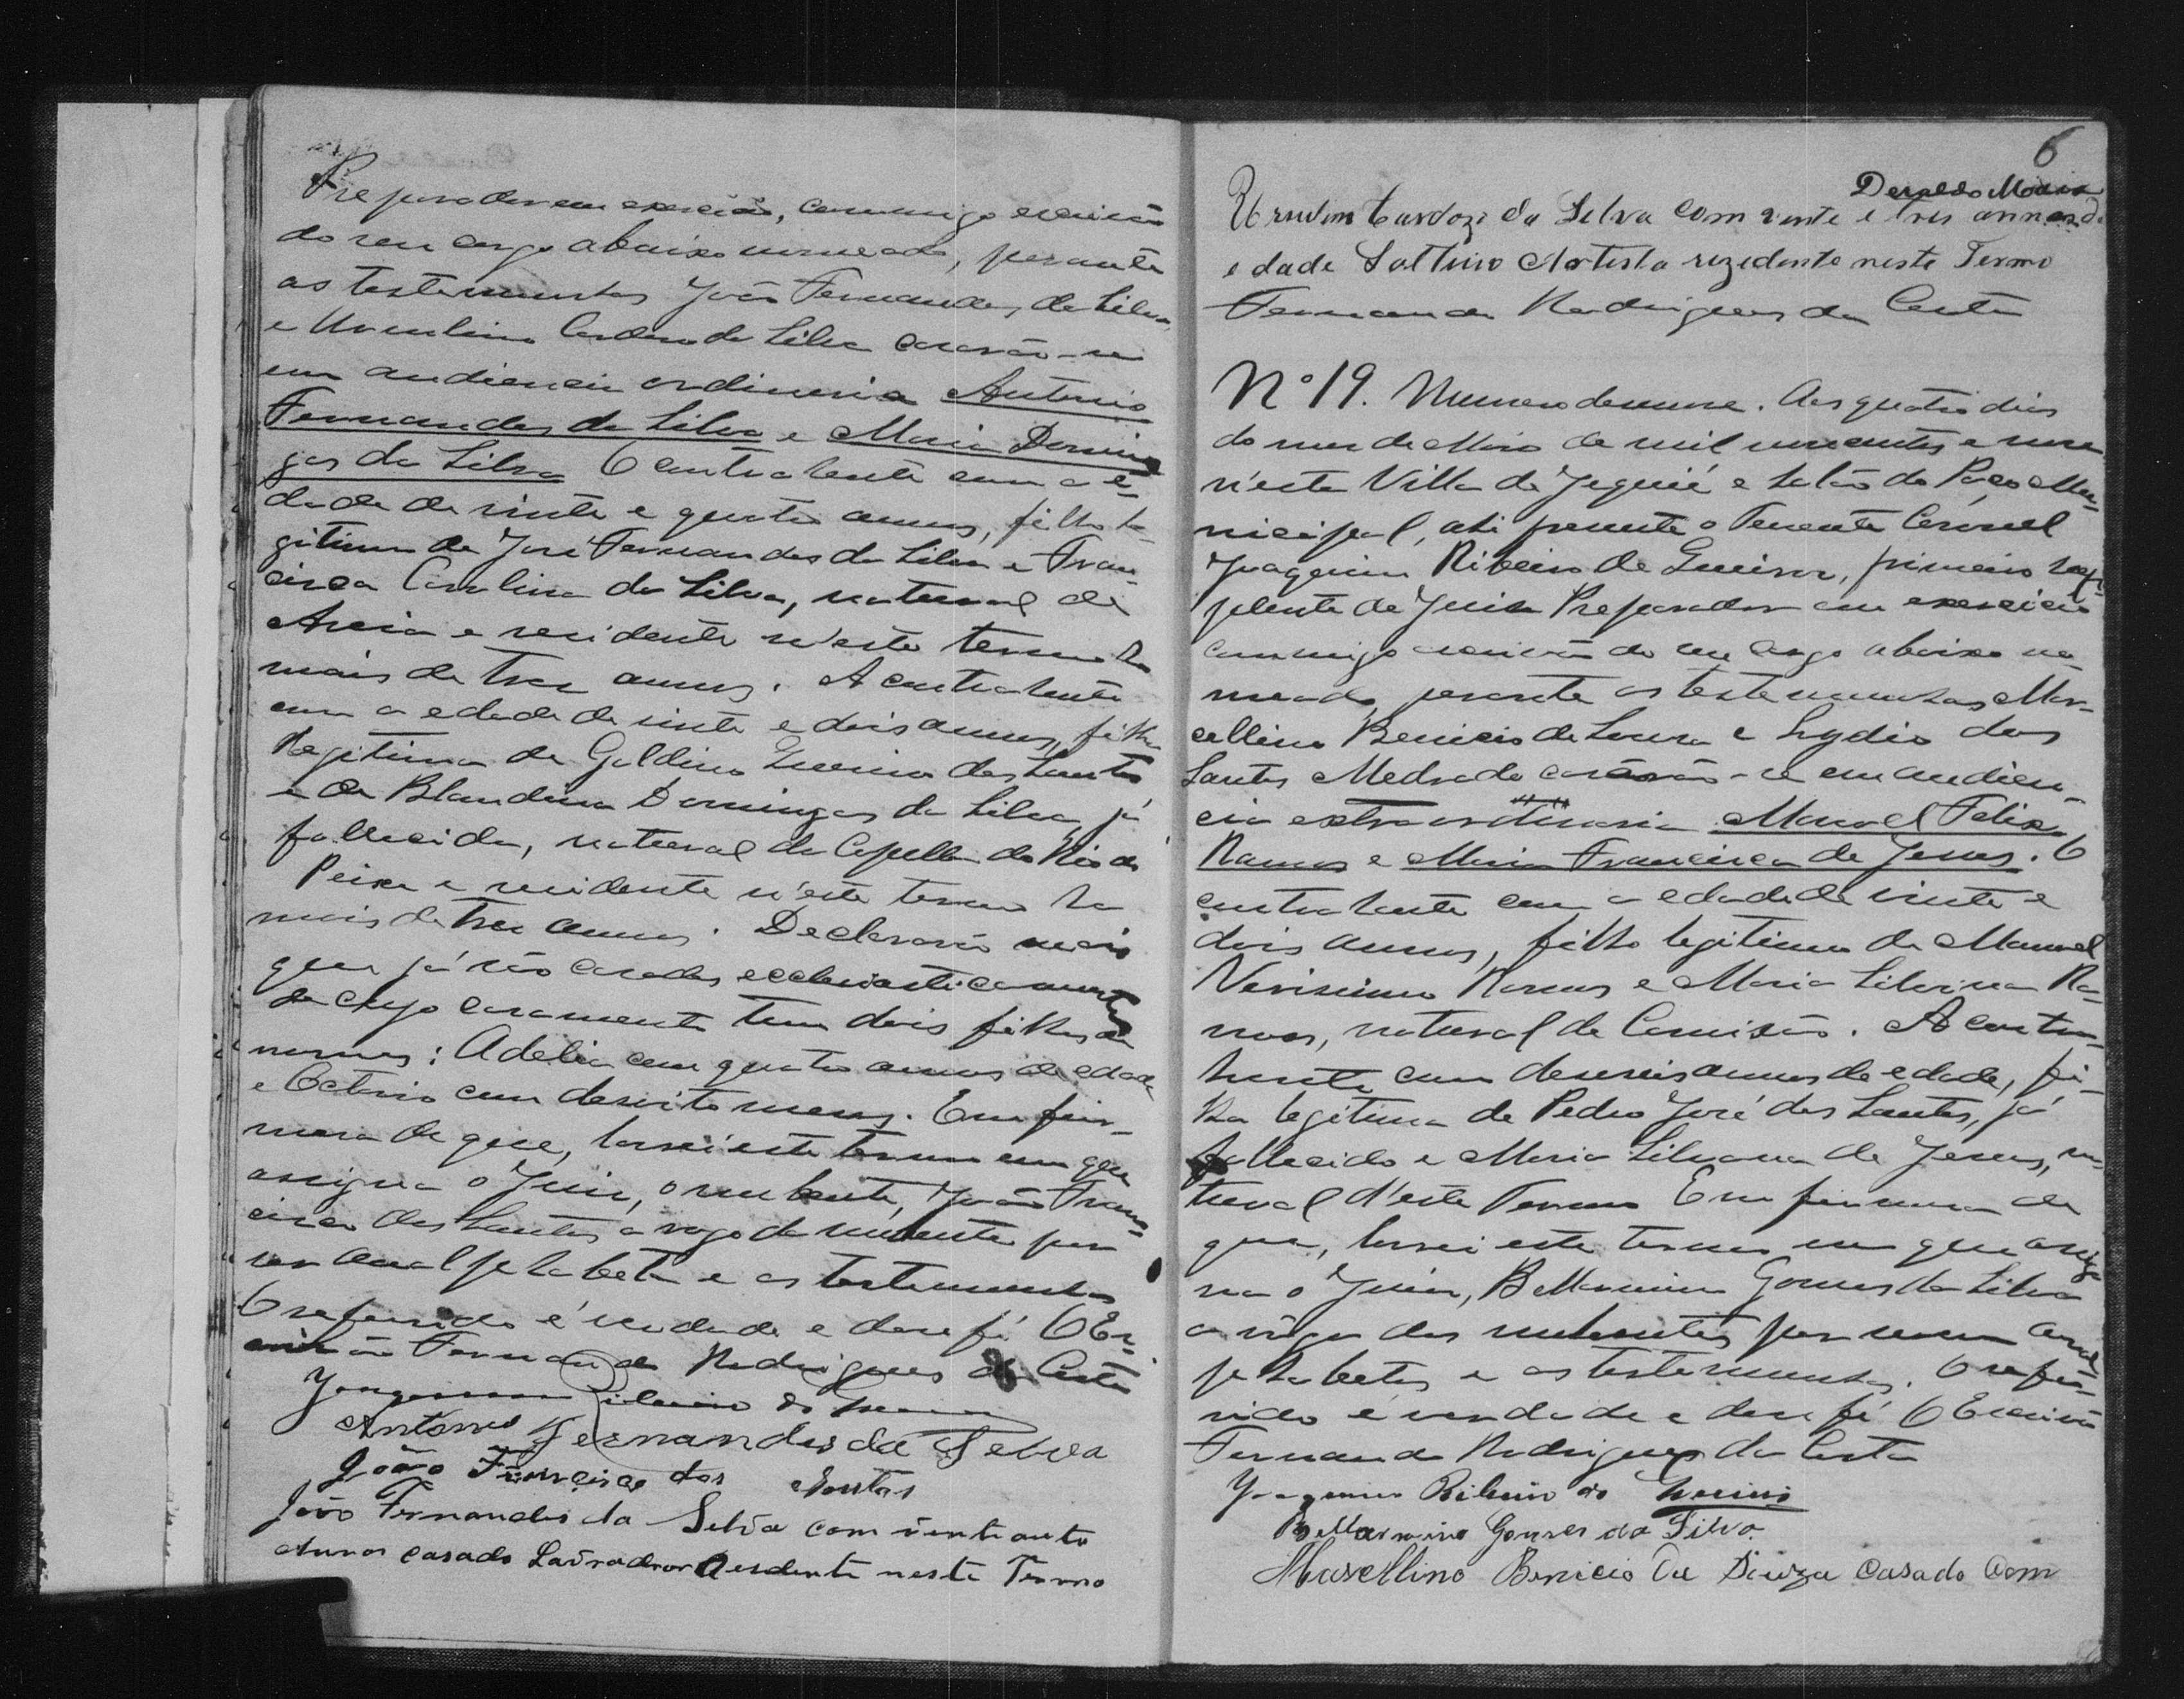 Preparador em exercicio, commigo escrivão
do seu cargo abaixo nomeado, perante
as testemunhas João Fernandes da Silva
e Ursulino Cardoso da Silva casarão-se
em audiencia ordinaria Antonio
Fernandes da Silva e Maria Domin
gas da Silva O contrahente com a e-
dade de vinte e quatro annos, filho le-
gitimo de José Fernandes da Silva e Fran-
cisca Carolina da Silva, natural de
Areia e residente n'este termo ha
mais de tres annos. A contrahente
com a edade de vinte e dois annos, filha
legitima de Galdino dos Santos
e de Blandina Domingas da Silva, já
fallecida, natural da Capella do Rio do
Peixe e residente n'este termo ha
mais de tres annos. Declararão mais
que já são casados ecclesiasticamente
de cujo casamento tem dois filhos de
nomes: Adelia com quatro annos de edade
e Octavio com desoito meses. Em fir-
mesa de que, lavrei este termo em que
assigna o Juiz, o nubente, João Fran-
cisco dos Santos a rogo da nubente por
ser analphabeta e as testemunhas
O referido é verdade e dou fé O Es-
crivão Fernando Rodrigues da Costa
Joaquim Ribeiro de
Antonio Fernandes da Selva
João Francisco dos Santos
João Fernandes da Selva com vente auto
Annos casado Lavrador Resdente neste Termo
6
Deraldo Moura
Cardozo da Selva com vente e tres annos de
edade Solteiro Artista rezedente neste Termo
Fernando Rodrigues da Costa
Nº 19. Numero desenove. Aos quatro dias
do mes de Maio de mil novecentos e nove
n'esta Villa de Jequié e salão do Paço Mu-
nicipal, ahi presente o Tenente Coronel
Joaquim Ribeiro de, primeiro sup-
plente de Juiz Preparador em exercicio
commigo escrivão do seu cargo abaixo no-
meado, perante as testemunhas Mar-
cellino Benicio de Souza e Lydio dos
Santos Medrado casarão-se em audien-
cia extraordinaria Manoel Felix
Ramos e Maria Francisca de Jesus. O
contrahente com a edade de vinte e
dois annos, filho legitimo de Manoel
Verissimo Ramos e Maria Silvina Ra-
mos, natural de Conisão. A contra-
hente com deseseis annos de edade, fi-
lha legitima de Pedro José dos Santos, já
fallecido e Maria Silvana de Jesus, na-
tural d'este Termo Em firmesa de
que, lavrei este termo em que assig-
na o Juiz, Bellarmino Gomes da Silva
a rogo dos nubentes por serem anal-
phabetos e as testemunhas. O refe-
rido é verdade e dou fé O Escrivão
Fernando Rodrigues da Costa
Joaquim Ribeiro de
Bellarmino Gomes da Silva
Marcellino Benicio de Souza Casado Com